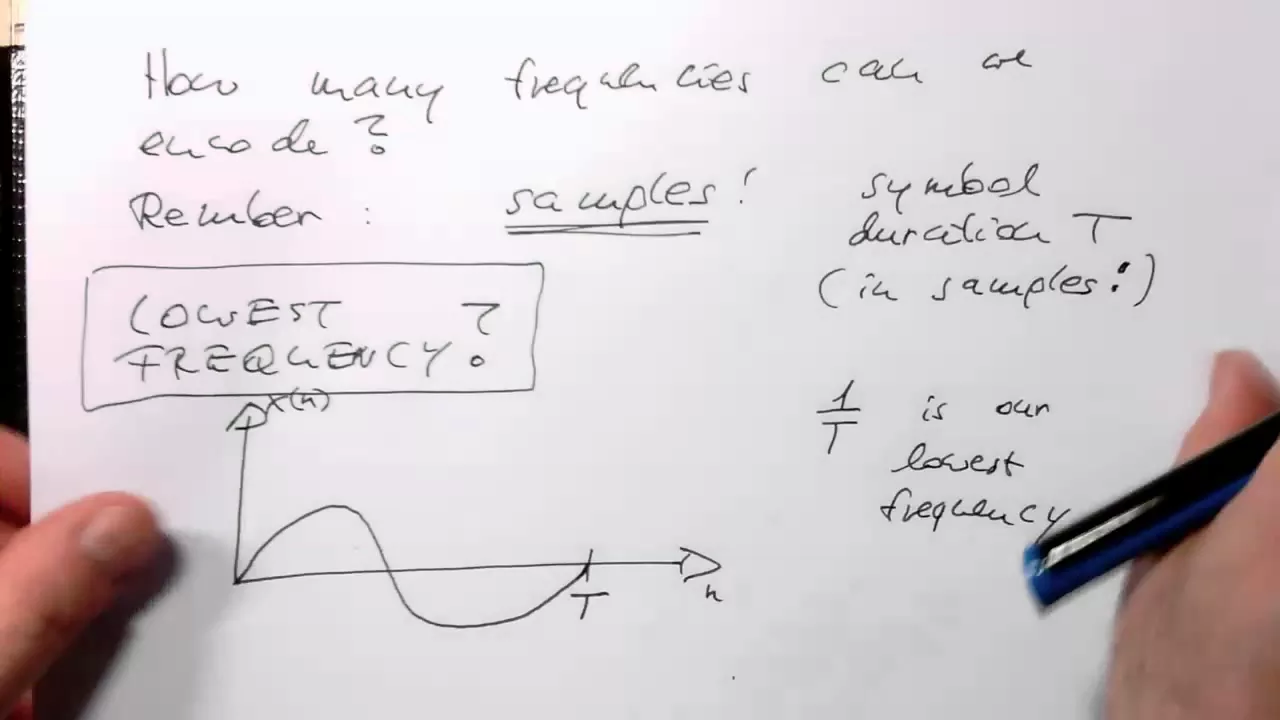 How many frequencies can we
encode?
Rember : samples!
symbol
duration T
(in samples!)
LOWEST
FREQUENCY?
x(n)
T
n
1/T is our
lowest
frequency